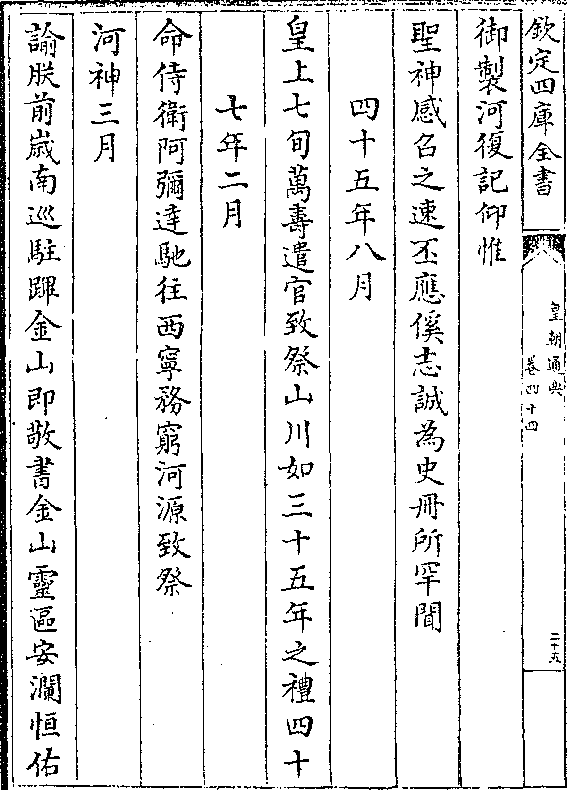 欽定四庫全書
皇朝通典
卷四十四
二十五
御製河復記仰惟
聖神感召之速丕應徯志誠為史冊所罕聞
四十五年八月
皇上七旬萬壽遣官致祭山川如三十五年之禮四十
七年二月
命侍衛阿彌達馳往西寧務窮河源致祭
河神三月
諭朕前嵗南巡駐蹕金山即敬書金山靈區安瀾恒佑